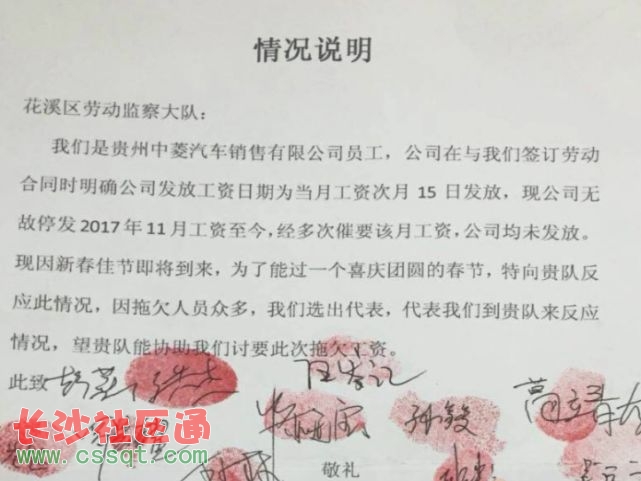 情况说明
花溪区劳动监察大队：
我们是贵州中菱汽车销售有限公司员工，公司在与我们签订劳动
合同时明确公司发放工资日期为当月工资次月 15 日发放，现公司无
故停发 2017 年 11 月工资至今，经多次催要该月工资，公司均未发放。
现因新春佳节即将到来，为了能过一个喜庆团圆的春节，特向贵队反
应此情况，因拖欠人员众多，我们选出代表，代表我们到贵队来反应
情况，望贵队能协助我们讨要此次拖欠工资。
此致
长沙社区通
www.cssqt.com
敬礼